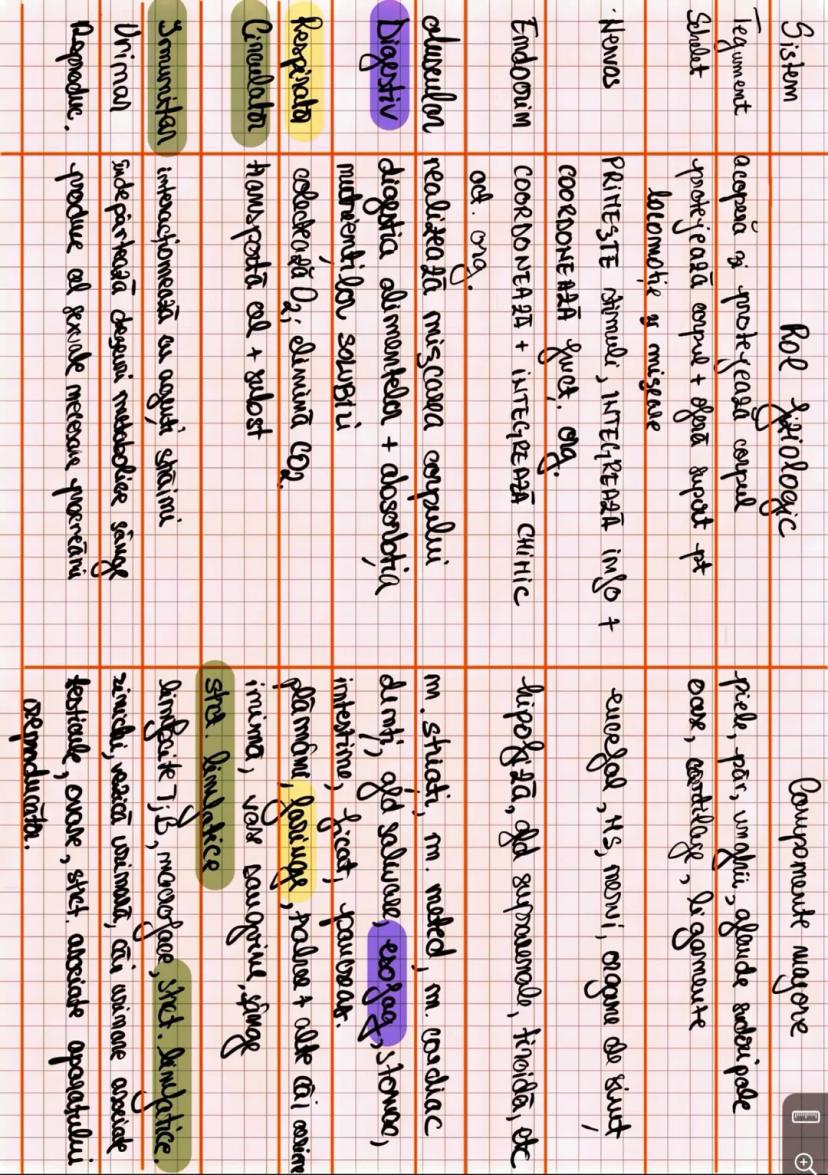 Sistem Rol fiziologic Componente majore
Tegument acoperă și protejează corpul piele, păr, unghii, glande sudoripale
Schelet protejează corpul + oferă suport pt oase, cartilage, ligamente
locomoție și mișcare
Nervos PRIMEȘTE stimuli, INTEGREAZĂ info + encefal, MS, nervi, organe de simț,
COORDONEAZĂ funcț. org.
Endocrin COORDONEAZĂ + INTEGREAZĂ CHIMIC hipofiză, gld suprarenale, tiroidă, etc
act. org.
Muscular realizează mișcarea corpului m. striați, m. neted, m. cardiac
Digestiv digestia alimentelor + absorbția dinți, gld salivare, esofag, stomac,
nutrienților SOLUBILI intestine, ficat, pancreas.
Respirator colectează O2; elimină CO2. plămâni, laringe, trahee + alte căi aeriene
Circulator transportă cel + subst inima, vase sangvine, sânge
strct. limfatice
Imunitar interacționează cu agenți străini limfocite T; B, macrofage, strct. limfatice.
Urinar îndepărtează deșeuri metabolice sânge rinichi, vezică urinară, căi urinare asociate
Reproduc. produc cel sexuale necesare procreării testicule, ovare, strct. asociate aparatului
reproducător.